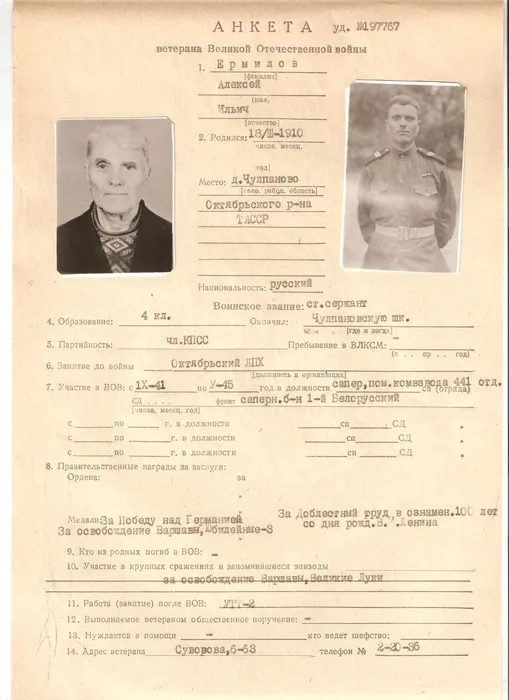 АНКЕТА уд. №197767
ветерана Великой Отечественной войны
1. Ермилов
[фамилия]
Алексей
(имя,
Ильич
[отчество]
2. Родился: 18/Ш-1910
число, месяц,
год)
Место: д.Чулпаново
[село, район, область]
Октябрьского р-на
ТАССР
Национальность: русский
Воинское звание: ст.сержант
4. Образование: 4 кл. Окончил: Чулпановскую шк.
[где и когда]
5. Партийность: чл.КПСС Пребывание в ВЛКСМ: –
(с . . . по . . год)
6. Занятие до войны Октябрьский ЛПХ
[должность и организация]
7. Участие в ВОВ: с IX-41 по У-45 год в должности сапер,пом.комвзвода 441 отд.
СД . . . . фронт саперн.б-н 1-й Белорусский
[число, месяц, год)
с ______по ______ г. в должности ______сп ______СД
с ______по ______ г. в должности ______сп ______СД
с ______по ______ г. в должности ______сп ______СД
8. Правительственные награды за заслуги:
Ордена: за
Медали: За Победу над Германией За Доблестный труд в ознамен.100 лет
За освобождение Варшавы, Юбилейные-3 со дня рожд.В. Ленина
9. Кто из родных погиб в ВОВ: –
10. Участие в крупных сражениях и запоминвшиеся эпизоды
за освобождение Варшавы,Великие Луки
11. Работа (занятие) после ВОВ: УТТ-2
12. Выполняемое ветераном общественное поручение: –
13. Нуждается в помощи – кто ведет шефство:
14. Адрес ветерана Суворова,6-63 телефон № 2-20-36